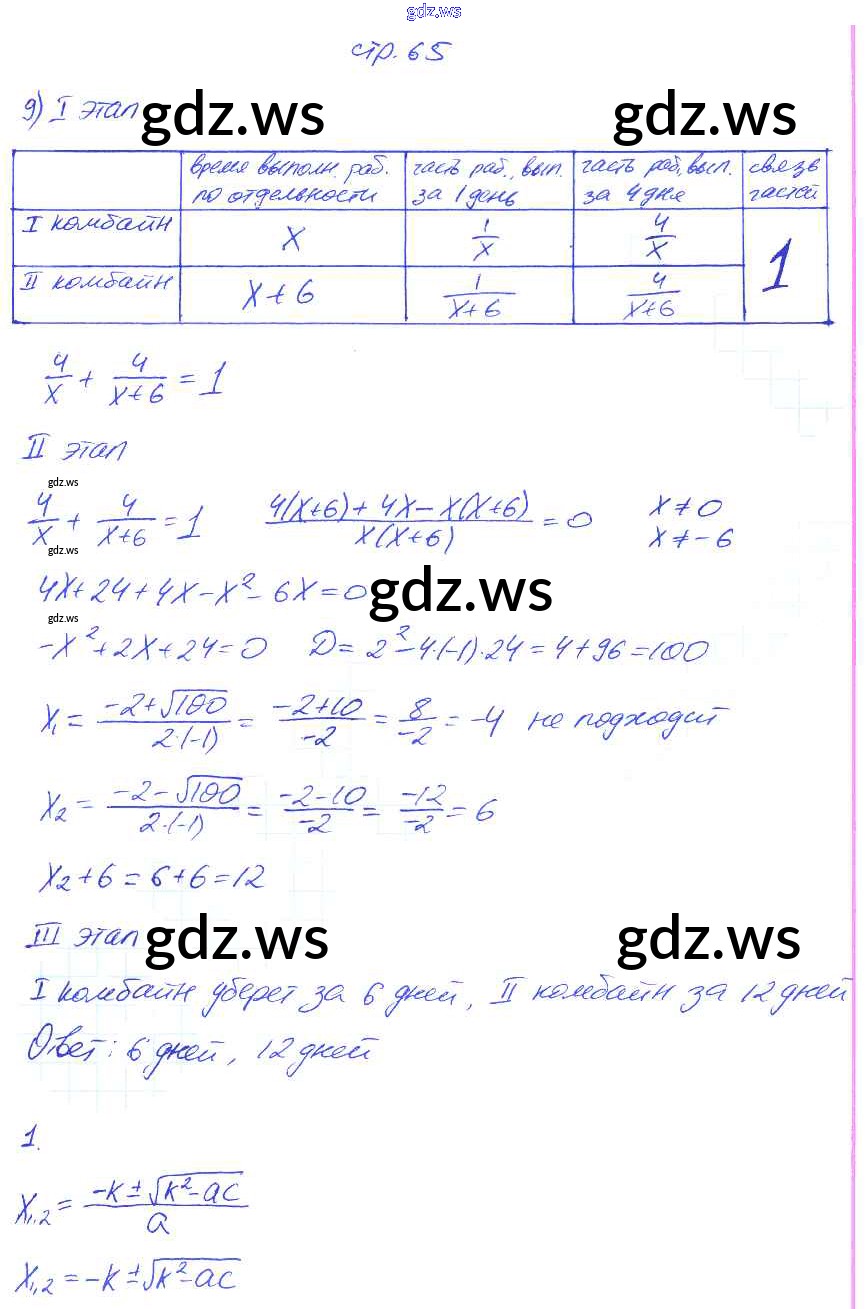 gdz.ws
стр. 65
9) I этап
gdz.ws gdz.ws
время выполн. раб. по отдельности | часть раб., вып. за 1 день | часть раб., вып. за 4 дня | связь частей
I комбайн | x | 1/x | 4/x | 1
II комбайн | x+6 | 1/(x+6) | 4/(x+6)
4/x + 4/(x+6) = 1
II этап
gdz.ws
4/x + 4/(x+6) = 1 (4(x+6)+4x-x(x+6))/(x(x+6)) = 0 x≠0 x≠-6
gdz.ws
4x+24+4x-x²-6x=0
gdz.ws
gdz.ws
-x²+2x+24=0 D=2²-4·(-1)·24=4+96=100
x₁ = (-2+√100)/(2·(-1)) = (-2+10)/(-2) = 8/(-2) = -4 не подходит
x₂ = (-2-√100)/(2·(-1)) = (-2-10)/(-2) = (-12)/(-2) = 6
x₂+6=6+6=12
III этап
gdz.ws gdz.ws
I комбайн уберет за 6 дней, II комбайн за 12 дней
Ответ: 6 дней, 12 дней
1.
x₁,₂ = (-k±√(k²-ac))/a
x₁,₂ = -k±√(k²-ac)